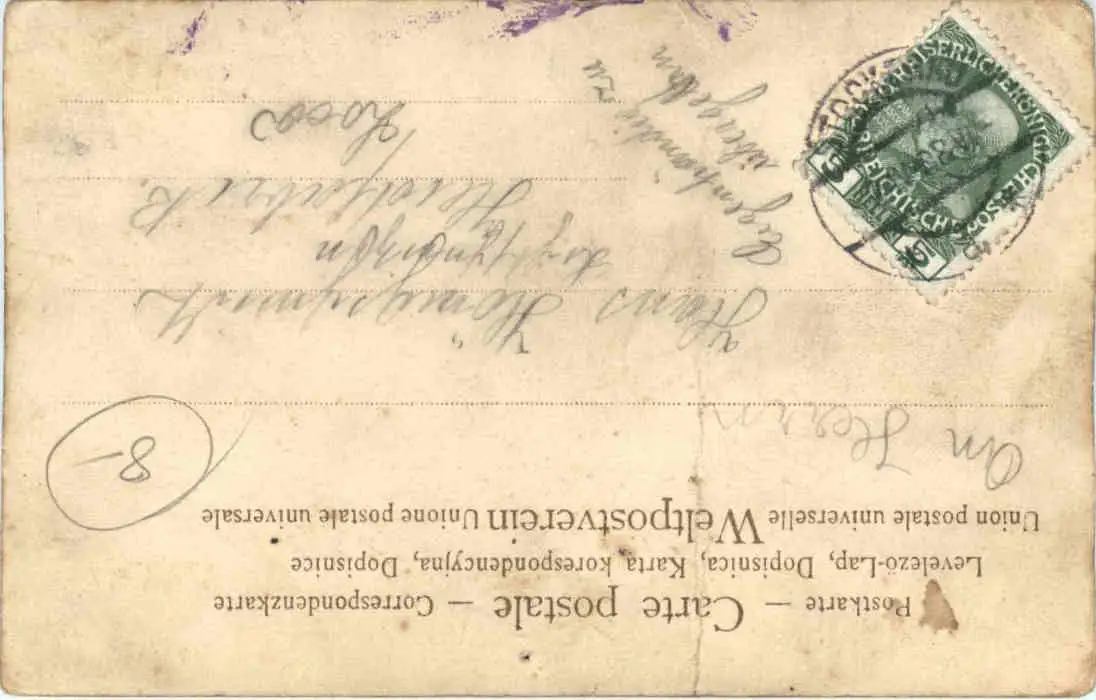 Postkarte – Carte postale – Correspondenzkarte
Levelező-Lap, Dopisnica, Karta korespondencyjna, Dopisnice
Union postale universelle Weltpostverein Unione postale universale
8–
An Herrn
Hans
Loco
Eigenhändig zu
übergeben
KAISERLICHE KÖNIGLICHE ÖSTERREICHISCHE POST
5 5